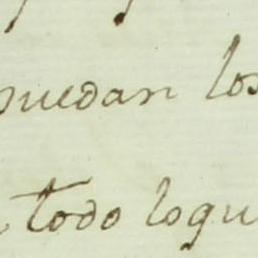 puedan los
todo loqu